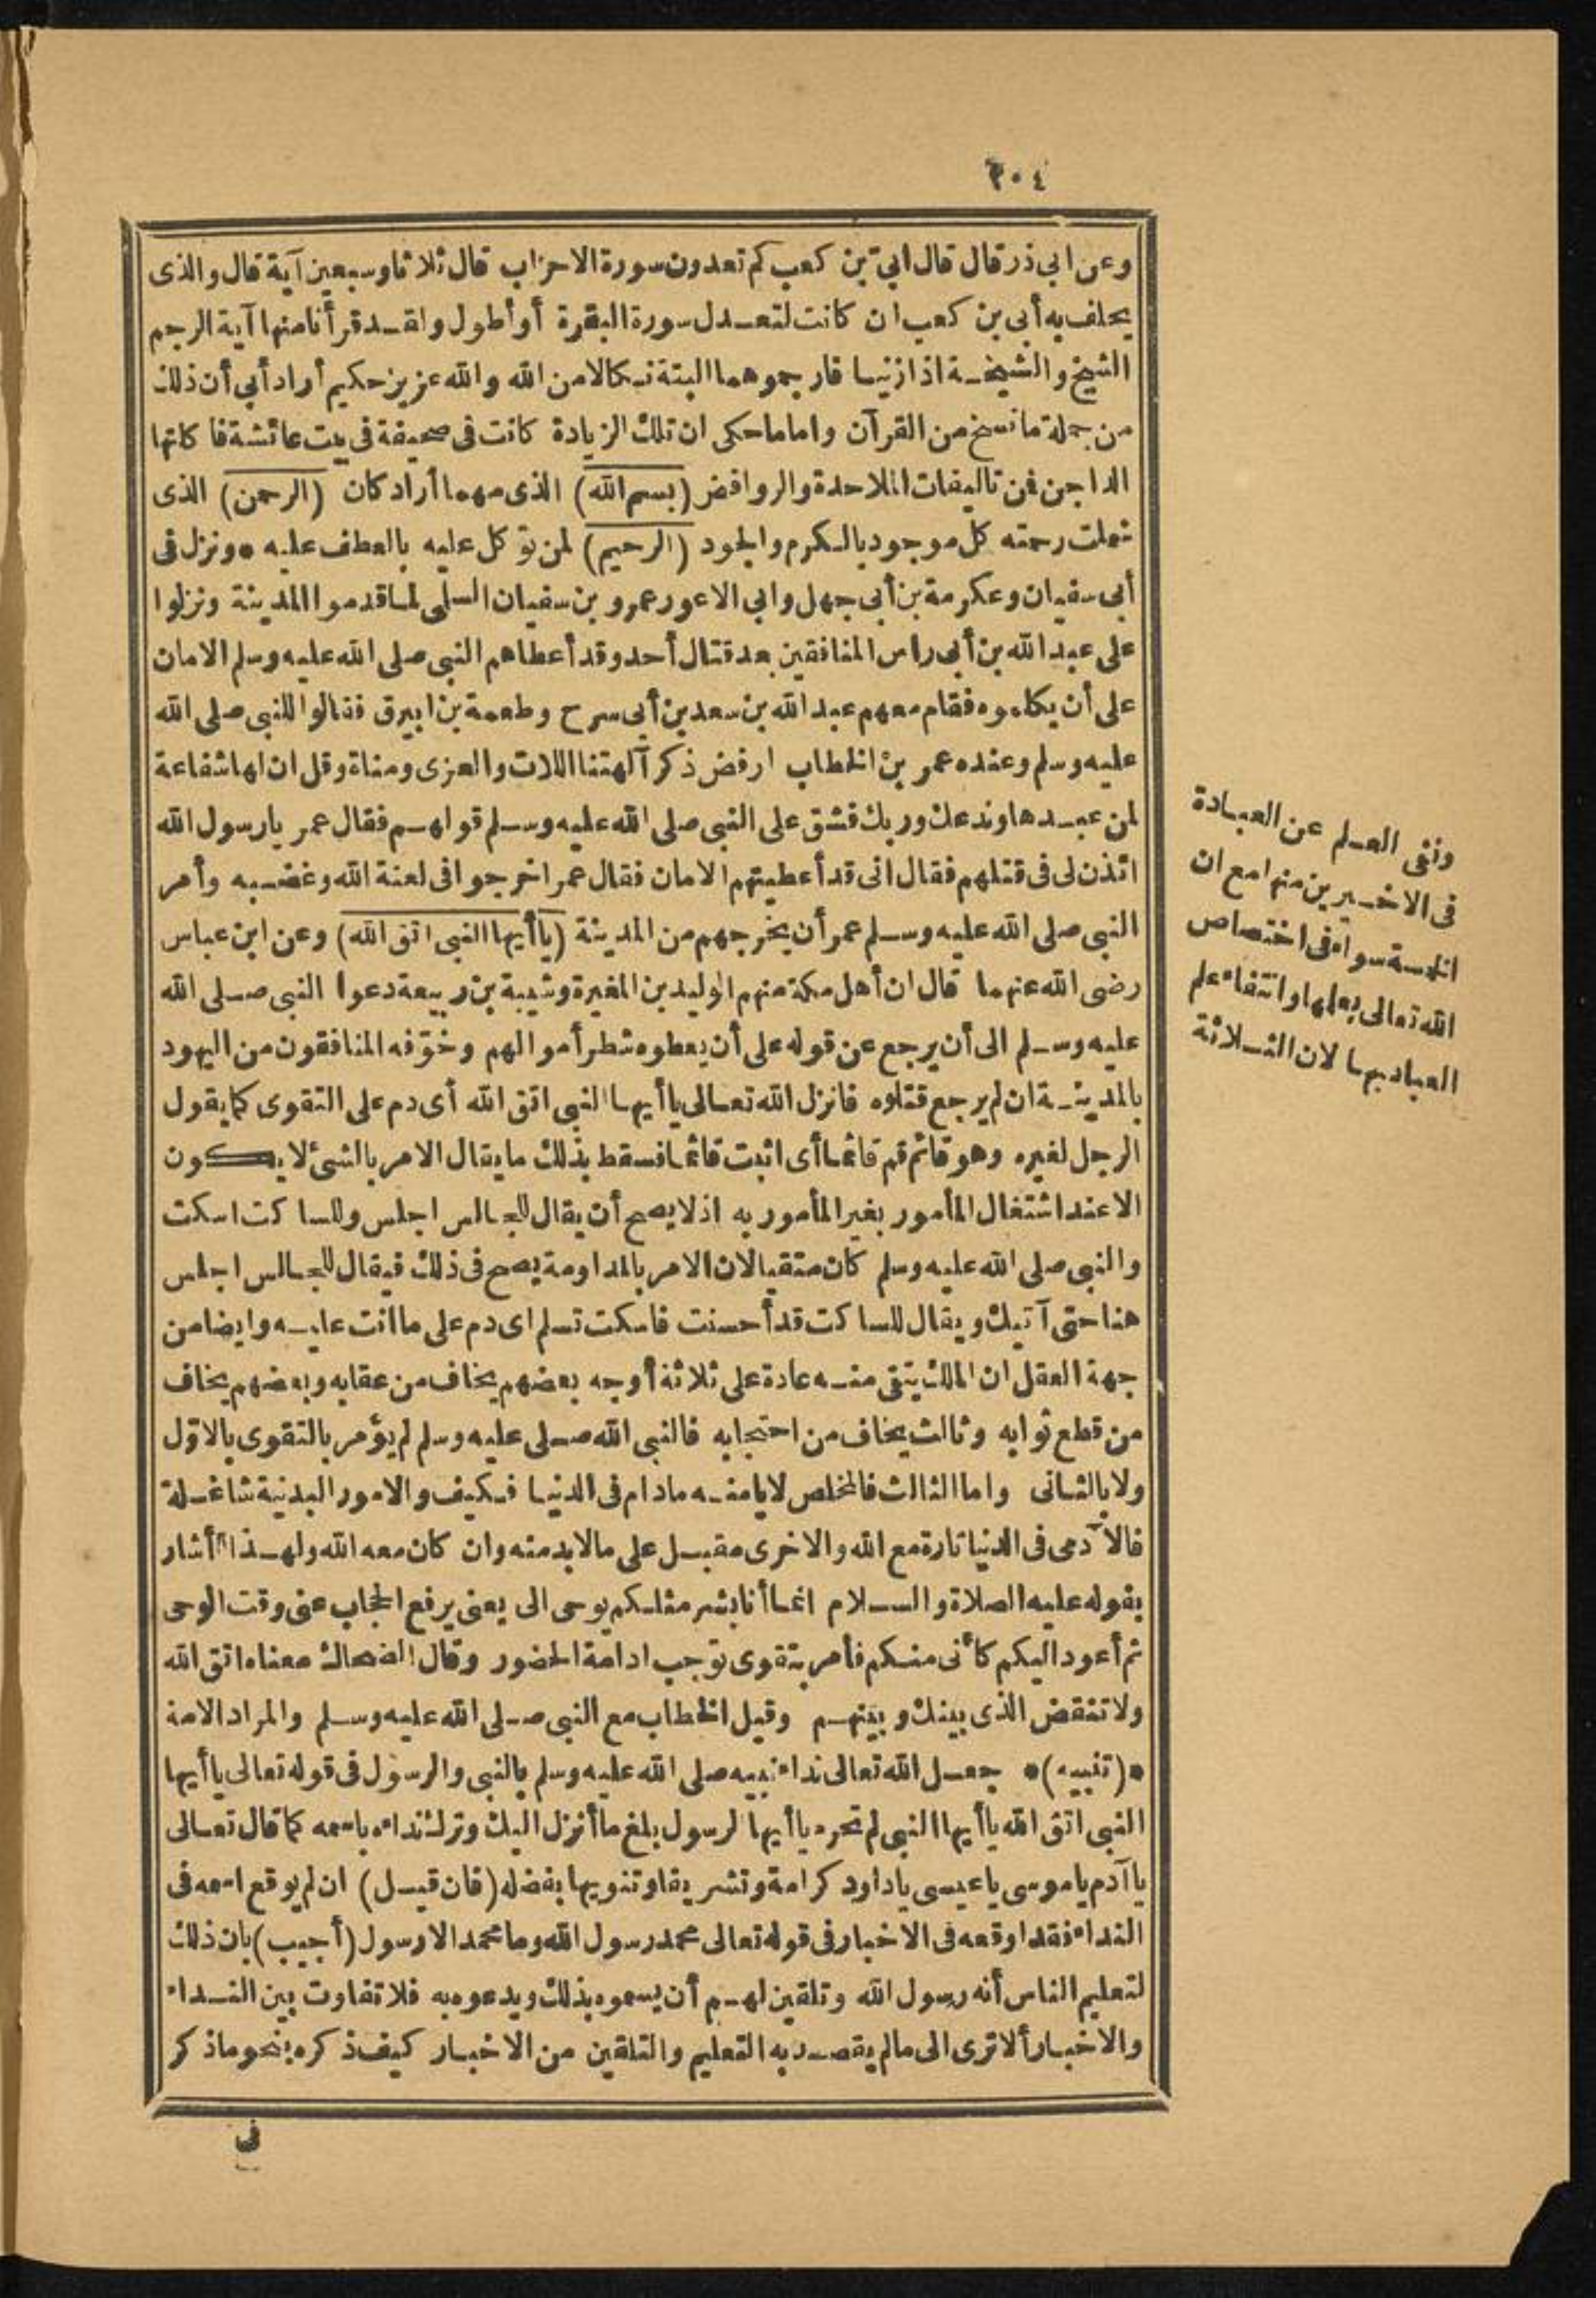 ٣٠٤
وعن ابى ذر قال قال ابىّ بن كعب كم تعدون سورة الاحزاب قال ثلاثا وسبعين آية قال والذى
يحلف به أبى بن كعب ان كانت لتعدل سورة البقرة أو أطول ولقد قرأنا منها آية الرجم
الشيخ والشيخة اذا زنيا فارجموهما البتة نكالا من الله والله عزيز حكيم أراد أبى أن ذلك
من جملة ما نسخ من القرآن واما ما حكى ان تلك الزيادة كانت فى صحيفة فى بيت عائشة فاكلتها
الداجن فمن تاليفات الملاحدة والروافض (بسم الله) الذى مهما أراد كان (الرحمن) الذى
شملت رحمته كل موجود بالكرم والجود (الرحيم) لمن توكل عليه بالعطف عليه • ونزل فى
أبى سفيان وعكرمة بن أبى جهل وابى الاعور عمرو بن سفيان السلمى لما قدموا المدينة ونزلوا
على عبد الله بن أبى راس المنافقين بعد قتال أحد وقد أعطاهم النبى صلى الله عليه وسلم الامان
على أن يكلموه فقام معهم عبد الله بن سعد بن أبى سرح وطعمة بن ابيرق فقالوا للنبى صلى الله
عليه وسلم وعنده عمر بن الخطاب ارفض ذكر آلهتنا اللات والعزى ومناة وقل ان لها شفاعة
لمن عبدها وندعك وربك فشق على النبى صلى الله عليه وسلم قولهم فقال عمر يارسول الله
ائذن لى فى قتلهم فقال انى قد أعطيتهم الامان فقال عمر اخرجوا فى لعنة الله وغضبه وأمر
النبى صلى الله عليه وسلم عمر أن يخرجهم من المدينة (ياأيها النبى اتق الله) وعن ابن عباس
رضى الله عنهما قال ان أهل مكة منهم الوليد بن المغيرة وشيبة بن ربيعة دعوا النبى صلى الله
عليه وسلم الى أن يرجع عن قوله على أن يعطوه شطر أموالهم وخوّفه المنافقون من اليهود
بالمدينة ان لم يرجع قتلوه فانزل الله تعالى ياأيها النبى اتق الله أى دم على التقوى كما يقول
الرجل لغيره وهو قائم قم قائما أى اثبت قائما فسقط بذلك ما يقال الامر بالشئ لا يكون
الا عند اشتغال المأمور بغير المأمور به اذ لا يصح أن يقال للجالس اجلس وللساكت اسكت
والنبى صلى الله عليه وسلم كان متقيا لان الامر بالمداومة يصح فى ذلك فيقال للجالس اجلس
هنا حتى آتيك ويقال للساكت قد أحسنت فاسكت تسلم اى دم على ما انت عليه وايضا من
جهة العقل ان الملك يتقى منه عادة على ثلاثة أوجه بعضهم يخاف من عقابه وبعضهم يخاف
من قطع ثوابه وثالث يخاف من احتجابه فالنبى الله صلى عليه وسلم لم يؤمر بالتقوى بالاوّل
ولا بالثانى واما الثالث فالمخلص لايامنه مادام فى الدنيا فكيف والامور البدنية شاغلة
فالآدمى فى الدنيا تارة مع الله والاخرى مقبل على مالابد منه وان كان معه الله ولهذا أشار
بقوله عليه الصلاة والسلام انما أنا بشر مثلكم يوحى الى يعنى يرفع الحجاب عنى وقت الوحى
ثم أعود اليكم كأنى منكم فأمر بتقوى توجب ادامة الحضور وقال الضحاك معناه اتق الله
ولا تنقض الذى بينك وبينهم وقيل الخطاب مع النبى صلى الله عليه وسلم والمراد الامة
•(تنبيه)• جعل الله تعالى نداء نبيه صلى الله عليه وسلم بالنبى والرسول فى قوله تعالى ياأيها
النبى اتق الله ياأيها النبى لم تحرم ياأيها الرسول بلغ ما أنزل اليك وترك نداءه باسمه كما قال تعالى
ياآدم ياموسى ياعيسى ياداود كرامة وتشريفا وتنويها بفضله (فان قيل) ان لم يوقع اسمه فى
النداء فقد اوقعه فى الاخبار فى قوله تعالى محمد رسول الله وما محمد الا رسول (أجيب) بان ذلك
لتعليم الناس أنه رسول الله وتلقين لهم أن يسموه بذلك ويدعوه به فلا تفاوت بين النداء
والاخبار ألا ترى الى مالم يقصد به التعليم والتلقين من الاخبار كيف ذكره بنحو ماذكر
فى
ونفى العلم عن العبادة
فى الاخيرين منها مع ان
الخمسة سواء فى اختصاص
الله تعالى بعلمها وانتفاء علم
العباد بها لان الثلاثة